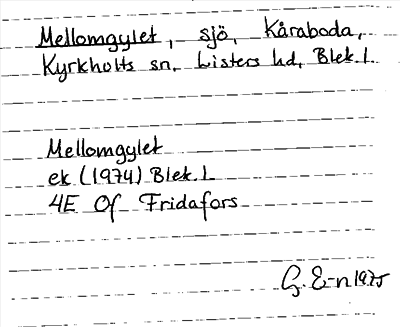 Mellomgylet, sjö, Kåraboda,
Kyrkhults sn, Listers hd, Blek. l.
Mellomgylet
ek (1974) Blek. l
4E 0f Fridafors
G. E-n 1975